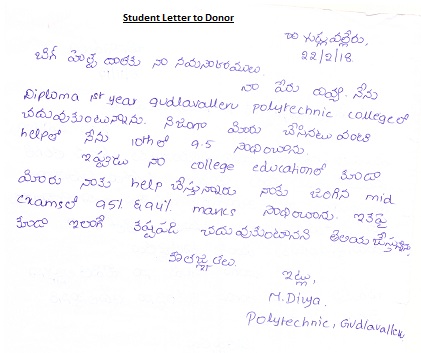 Student Letter to Donor
గుడ్లవల్లేరు,
22/2/18.
బిగ్ హెల్ప్ దాతకు నా నమస్కారములు.
నా పేరు దివ్య. నేను
Diploma 1st year gudlavalleru polytechnic collegeలో
చదువుకుంటున్నాను. నిజంగా మీరు చేసినటువంటి
helpతో నేను 10thలో 9.5 సాధించాను
ఇప్పుడు నా college educationలో కూడా
మీరు నాకు help చేస్తున్నారు నాకు జరిగిన mid
examsలో 95% & 94% marks సాధించాను. ఇకపై
కూడా ఇలాగే కష్టపడి చదువుకుంటానని తెలియ చేస్తున్నా
కృతజ్ఞతలు.
ఇట్లు,
M. Divya.
Polytechnic, Gudlavalleru